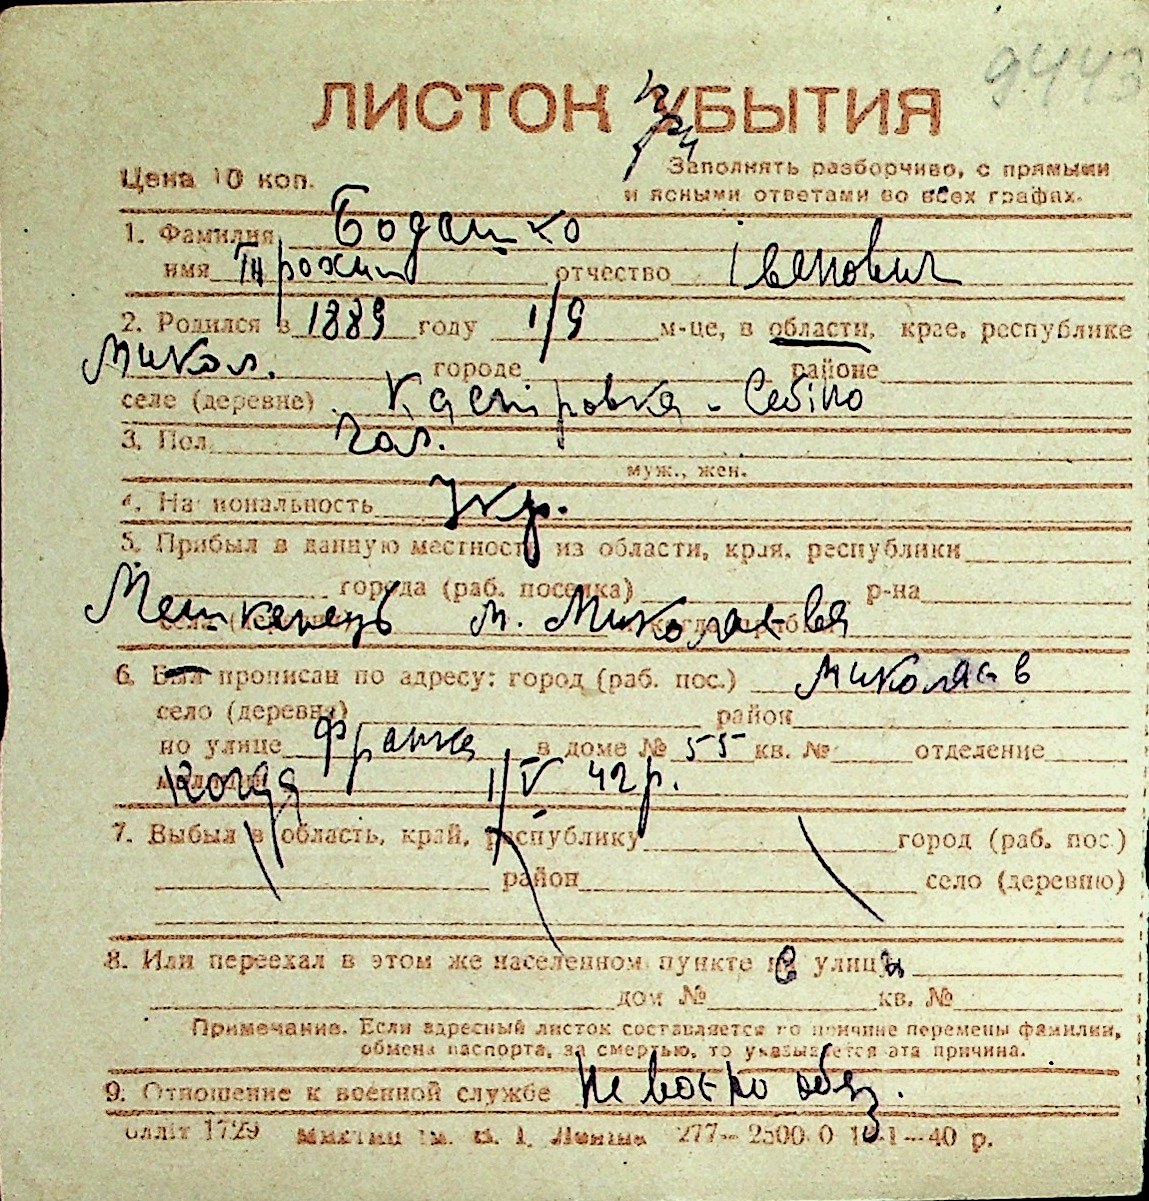 9443
ЛИСТОК УБЫТИЯ
Цена 10 коп.
Заполнять разборчиво, с прямыми
и ясными ответами во всех графах.
1. Фамилия Бодашко
имя Трохим отчество Іванович
2. Родился в 1889 году 1/9 м-це, в области, крае, республике
Микол. городе районе
селе (деревне) Касперовка - Себіно
3. Пол чол.
муж., жен.
4. Национальность Укр.
5. Прибыл в данную местность из области, края, республики
города (раб. поселка) р-на
Мешканець м. Миколаєва
6. Был прописан по адресу: город (раб. пос.) Миколаєв
село (деревня) район
по улице Франка в доме № 55 кв. № отделение
милиции когда 1/V 42 р.
7. Выбыл в область, край, республику город (раб. пос.)
район село (деревню)
8. Или переехал в этом же населенном пункте с улицы
дом № кв. №
Примечание. Если адресный листок составляется по причине перемены фамилии,
обмена паспорта, за смертью, то указывается эта причина.
9. Отношение к военной службе Не воєнно обяз.
1729 277— 2500 0 40 р.